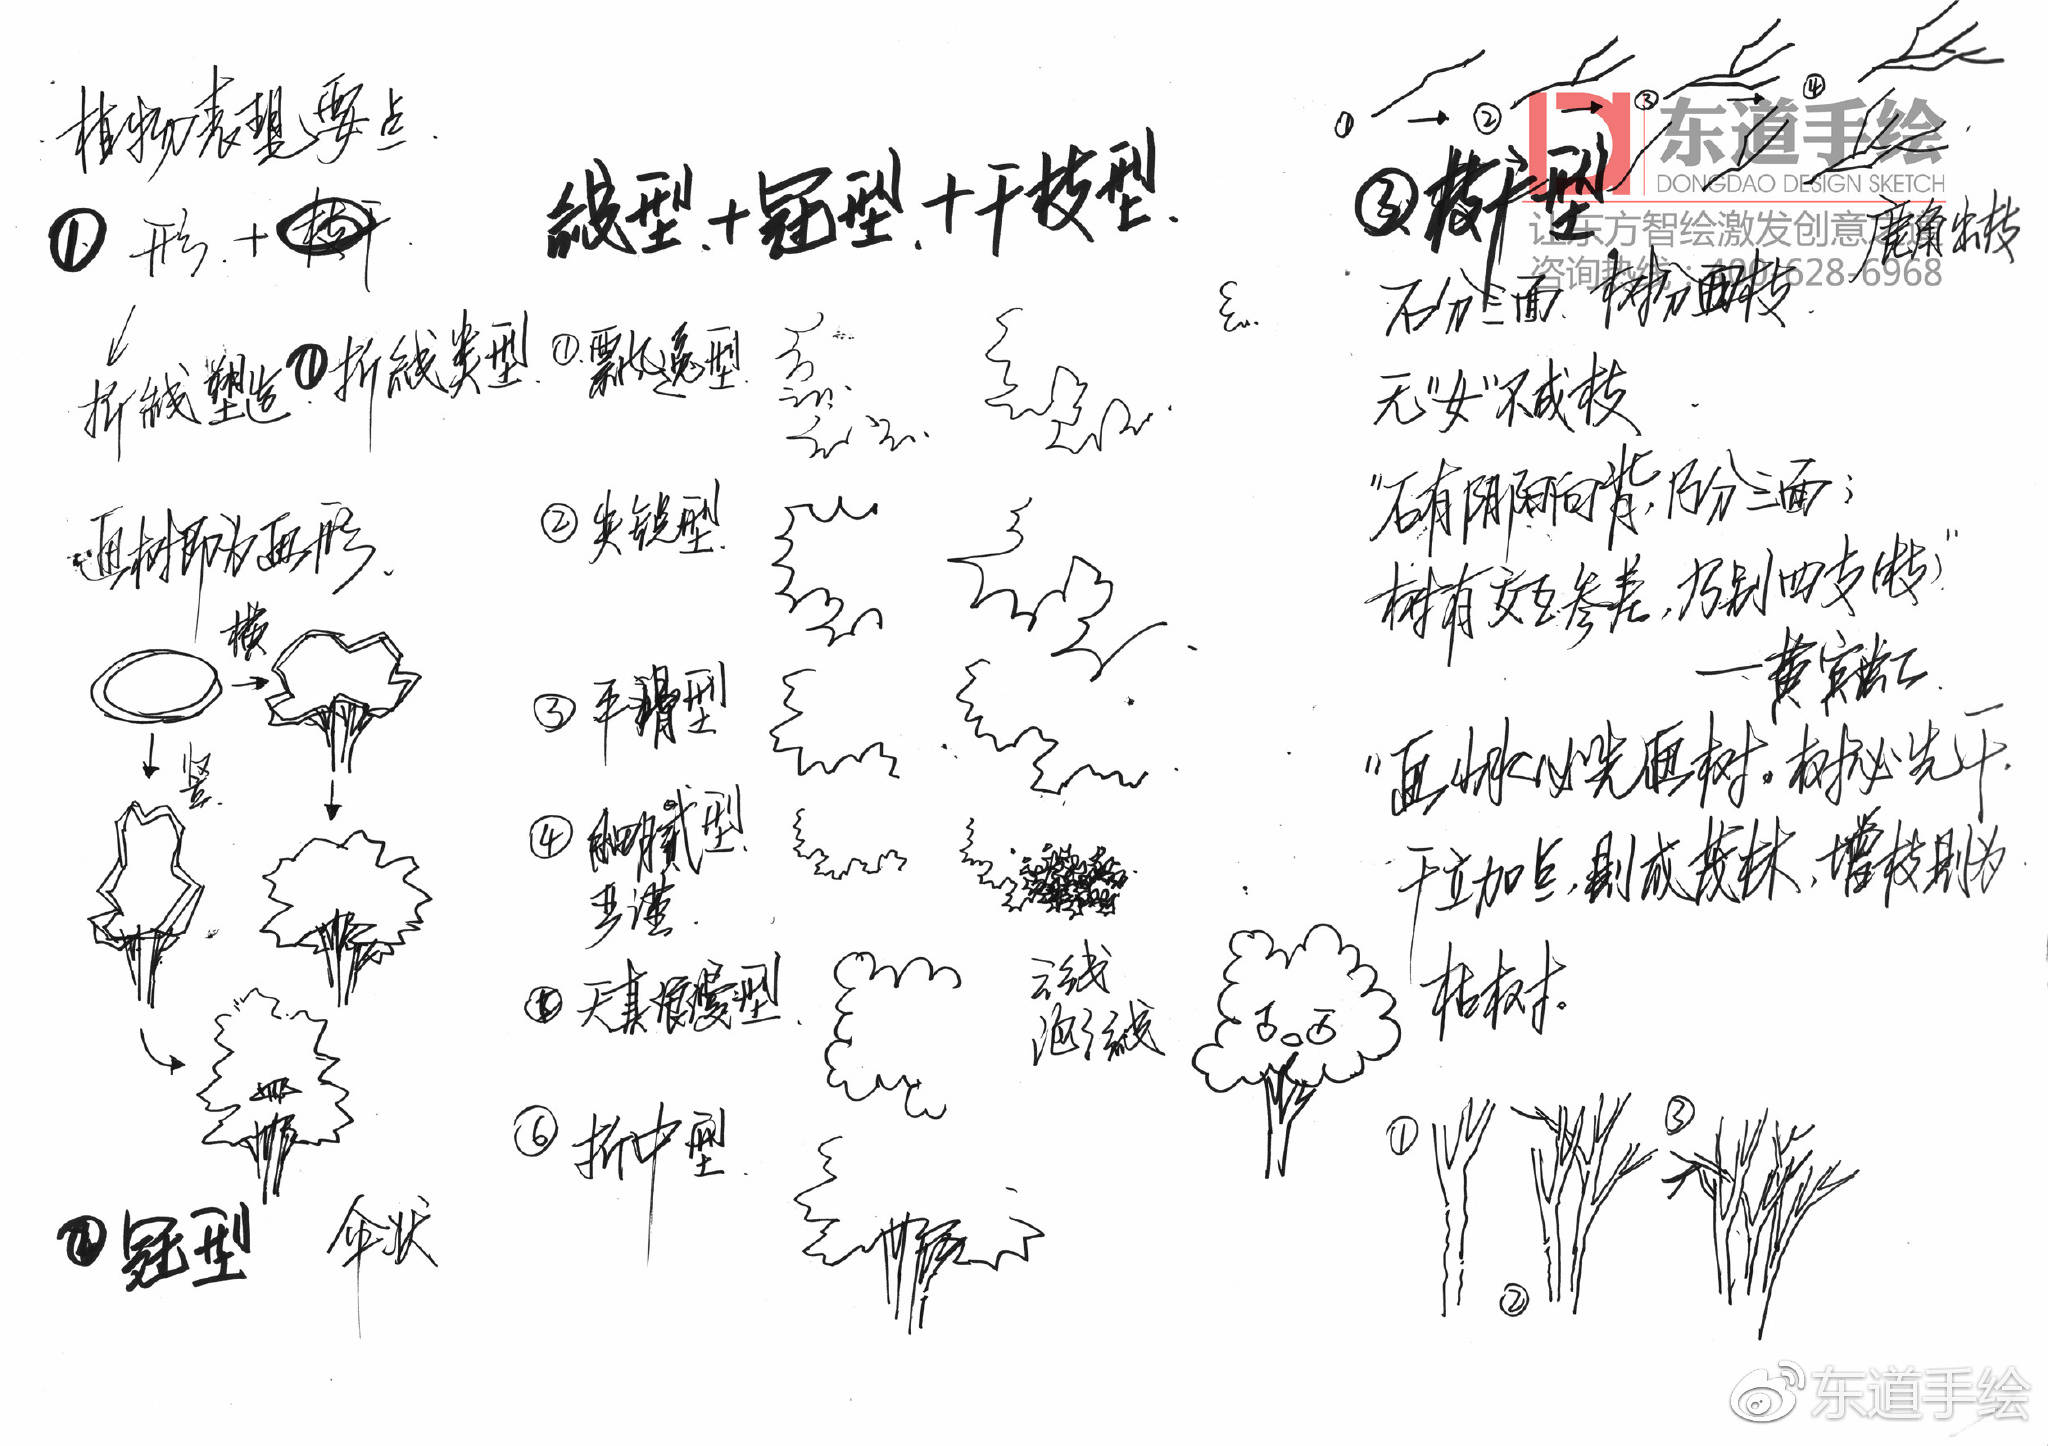 植物表现要点.
① 形.+枝干.
折线塑造.
画树即为画形.
横
竖.
② 冠型 伞状
線型.+冠型.+干枝型.
① 折線类型.
① 飘逸型.
② 尖锐型.
③ 平滑型
④ 细腻型
严谨.
⑤ 天真浪漫型.
云线
泡泡线
⑥ 折中型.
① → ② → ③ → ④
鹿角出枝
③. 枝干型
石分三面. 树分四枝.
无"女"不成枝
"石有阴阳向背,乃分三面;
树有交互参差,乃别四支(枝)"
—黄宾虹.
"画山水必先画树。树必先干.
干立加点,则成茂林,增枝则为
枯树。
① ② ③
东道手绘
DONGDAO DESIGN SKETCH
让东方智绘激发创意之道
咨询热线:400-628-6968
东道手绘